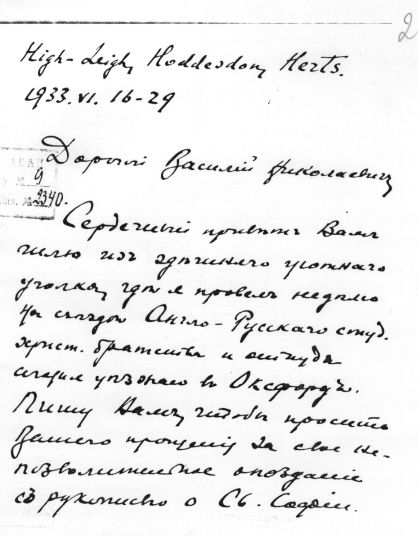 2
High-Leigh, Hoddesdon, Herts.
1933. VI. 16-29
9
2340.
Дорогой Василій Николаевичъ
Сердечный привѣтъ Вамъ
шлю изъ здѣшняго уютнаго
уголка, гдѣ я провелъ недѣлю
на съѣздѣ Англо-Русскаго студ.
христ. братства и откуда
сегодня уѣзжаю въ Оксфордъ.
Пишу Вамъ, чтобы просить
Вашего прощенія за свое не-
позволительное опозданіе
съ рукописью о Св. Софіи.